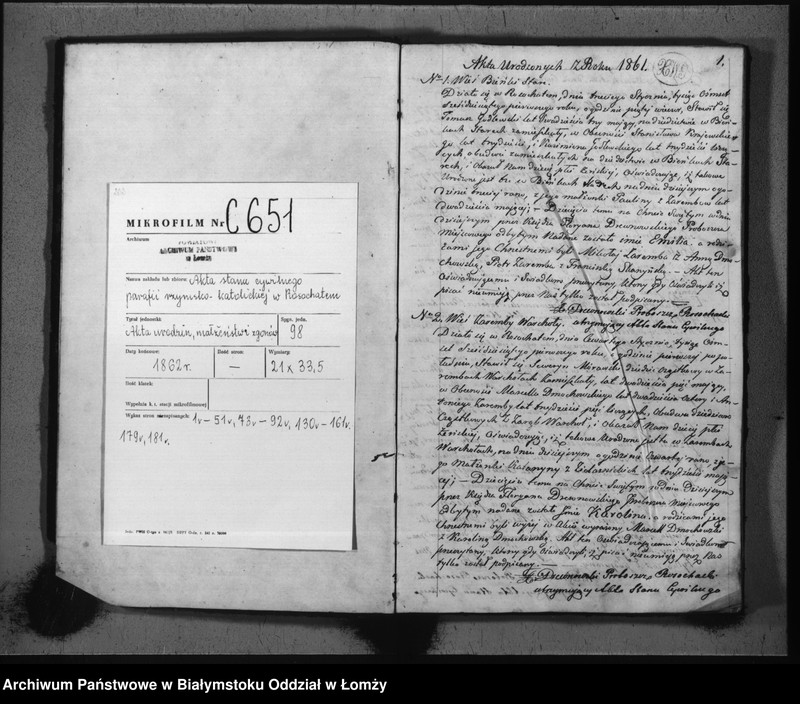 200
MIKROFILM Nr C 651
Archiwum
ARCHIWUM PAŃSTWOWE
w Łomży
Nazwa zakładu lub zbioru: Akta stanu cywilnego
parafii rzymsko-katolickiej w Rosochatem
Tytuł jednostki: Sygn. jedn.
Akta urodzin, małżeństw i zgonów 98
Daty krańcowe: Ilość stron: Wymiary:
1862 r. — 21 x 33,5
Ilość klatek:
Wypełnia k. i. stacji mikrofilmowej
Wykaz stron niezapisanych: 1v – 51v, 73v – 92v, 130v – 161v,
179v, 181v.
Akta Urodzonych Z Roku 1861. 1.
No 1. Wieś Bieńki Stare.
Działo się w Rosochatem, dnia trzeciego Stycznia, tysiąc Ośmset
Sześćdziesiątego pierwszego roku, o godzinie piątej wieczór, Stawił się
Tomasz Godlewski lat dwadzieścia trzy mający, na dziedzictwie w Bień-
kach Starych zamieszkały, w Obecności Stanisława
go lat trzydzieści, i Kazimierza Godlewskiego lat trzydzieści
cych obudwu zamieszkałych na dziedzictwie w Bieńkach Sta-
rych, i Okazał Nam dziecię płci Żeńskiej, Oświadczając, iż takowe
Urodzone jest tu w Bieńkach Starych na dniu dzisiejszym o go-
dzinie trzeciej rano, z jego małżonki Pauliny z Zarembów lat
dwadzieścia mającej; — Dziecięciu temu na Chrzcie Świętym w dniu
dzisiejszym przez Księdza Floryana Drewnowskiego Proboszcza
Miejscowego odbytym Nadane zostało imie Emilia a rodzi-
cami jego Chrzestnemi byli Mikołaj Zaremba z Anną Dmo-
chowską, Piotr Zaremba z Franciszką — Akt ten
Oświadczającemu i Świadkom przeczytany, Który gdy Oświadczyli iż
pisać nieumieją przez Nas tylko został podpisany. —
X. Drewnowski Proboszcz Rosochacki
utrzymujący Akta Stanu Cywilnego
No 2. Wieś Zaremby Warchoły.
Działo się w Rosochatem, dnia Czwartego Stycznia, tysiąc Ośm-
set Sześćdziesiątego pierwszego roku, o godzinie pierwszej po po-
łudniu, Stawił się Seweryn Murawski dziedzic Cząstkowy w Za-
rembach Warchołach Zamieszkały, lat dwadzieścia pięć mający,
w Obecności Marcella Dmochowskiego lat dwadzieścia cztery i An-
toniego Zaremby lat trzydzieści pięć liczących, Obudwu dziedziców
Cząstkowych z Zaręb Warchoł, i Okazał Nam dziecię płci
Żeńskiej, Oświadczając, iż takowe Urodzone jest w Zarembach
Warchołach, na dniu dzisiejszym o godzinie Czwartej rano, z je-
go Małżonki Katarzyny z lat trzydzieści mają-
cej; — Dziecięciu temu na Chrzcie Świętym w dniu Dzisiejszym
przez Księdza Floryana Drewnowskiego Proboszcza Miejscowego
odbytym nadane zostało Imie Karolina, a rodzicami jego
Chrzestnemi byli wyżej w Akcie wyrażony Marceli Dmochowski
z Karoliną Dmochowską. Akt ten Oświadczającemu i Świadkom
przeczytany, Który gdy Oświadczyli, iż pisać nieumieją przez Nas
tylko został podpisany. —
X. Drewnowski Proboszcz Rosochacki
utrzymujący Akta Stanu Cywilnego
Archiwum Państwowe w Białymstoku Oddział w Łomży